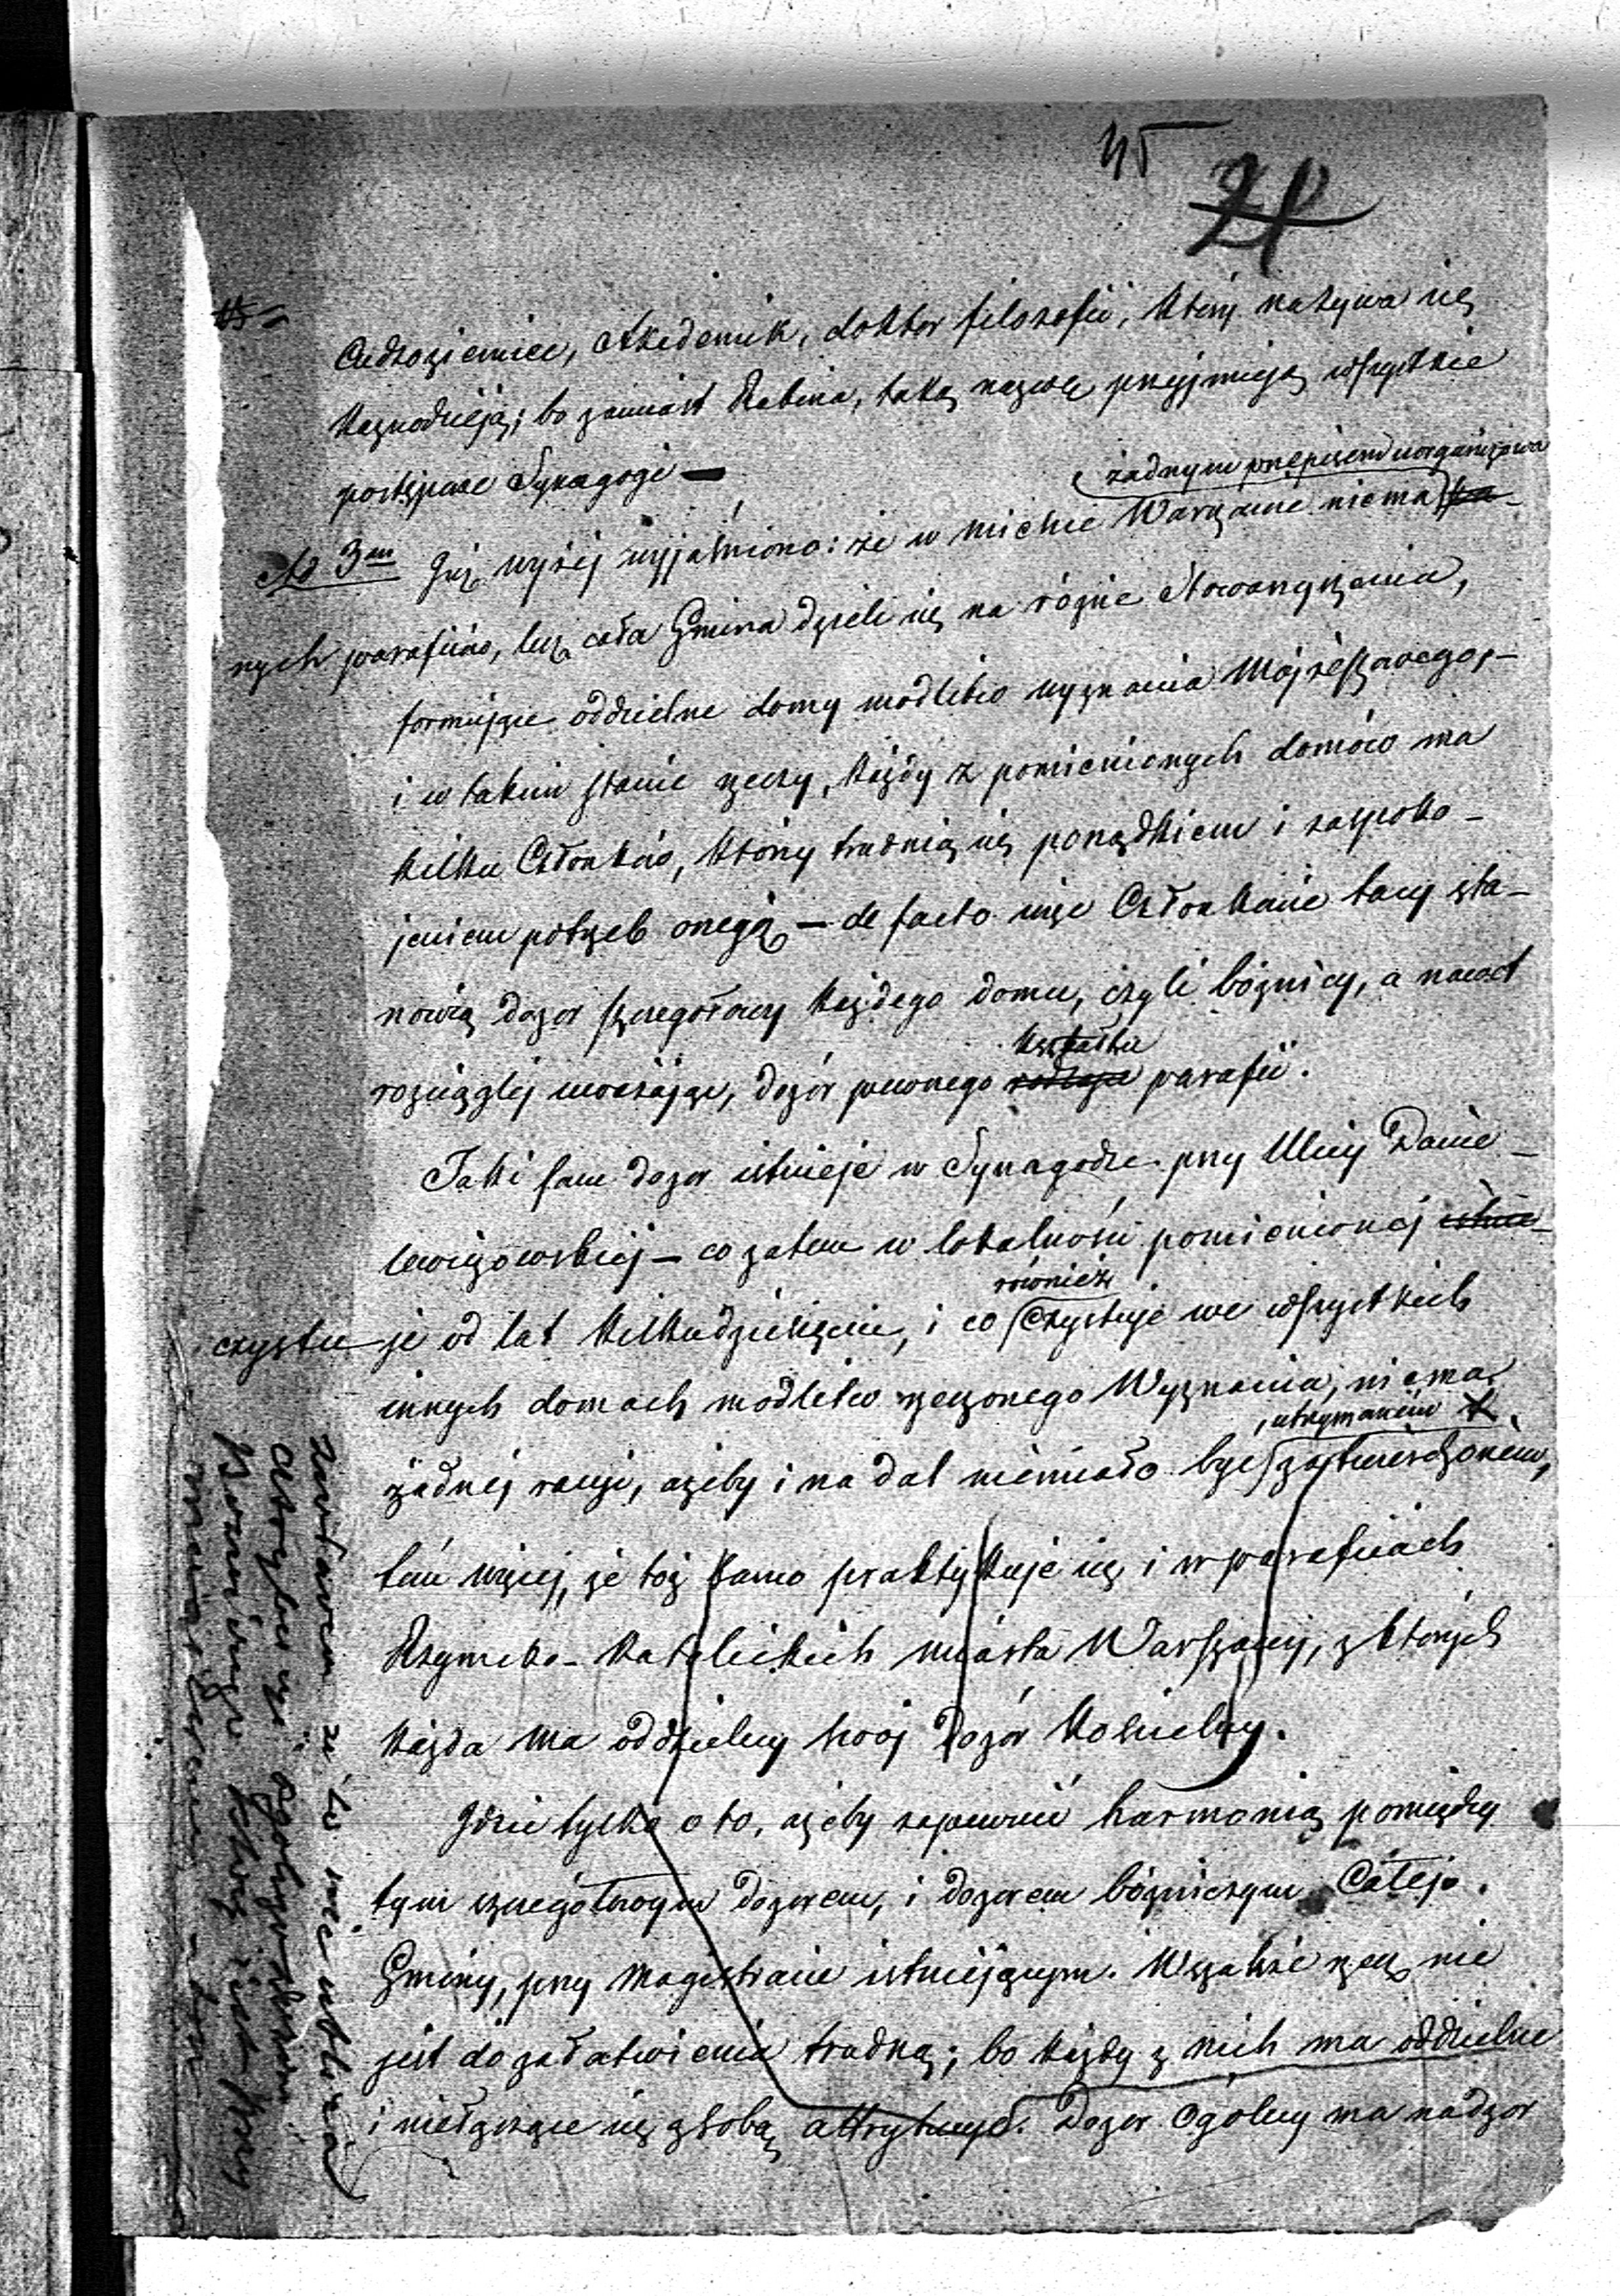 45
21
Cudzoziemiec, Akademik, doktor filozofii, który nazywa się
Kaznodzieją; bo zamiast Rabina, taką nazwę przyjmują wszystkie
postępowe Synagogi —
żadnym przepisem uorganizowa
Ad 3m Już wyżej wyjaśniono: że w mieście Warszawie niema
nych parafiów, lecz cała Gmina dzieli się na różne Stowarzyszenia,
formujące oddzielne domy modlitw wyznania Mojżeszowego, –
i w takim stanie rzeczy, każdy z pomienionych domów ma
kilku Członków, którzy trudnią się porządkiem i zaspoko–
jeniem potrzeb onego — de facto więc Członkowie tacy sta–
nowią dozor szczegółowy każdego domu, czyli bóżnicy, a nawet
kształtu
rozciąglej uważając, dozór pewnego rodzaju parafii.
Taki sam dozor istnieje w Synagodze przy Ulicy Danie–
lewiczowskiej — co zatem w lokalności pomienionej istnie–
również
exystu je od lat kilkudziesięciu, i co exystuje we wszystkich
innych domach modlitw rzeczonego Wyznania, niema
utrzymaniem
żadnej racyi, ażeby i nadal niemiało być zatwierdzonem,
tem więcej, że toż samo praktykuje się i w parafiach
Rzymsko-Katolickich miasta Warszawy, z których
każda ma oddzielny swój Dozór Kościelny.
Idzie tylko o to, ażeby zapewnić harmonią pomiędzy
tym szczegółowym Dozorem, i dozorem bóżniczym Całej
Gminy, przy Magistracie istniejącym. Wszakże rzecz nie
jest do załatwienia trudną; bo każdy z nich ma oddzielne
i niełączące się z sobą attrybucye. Dozor Ogólny ma nadzor